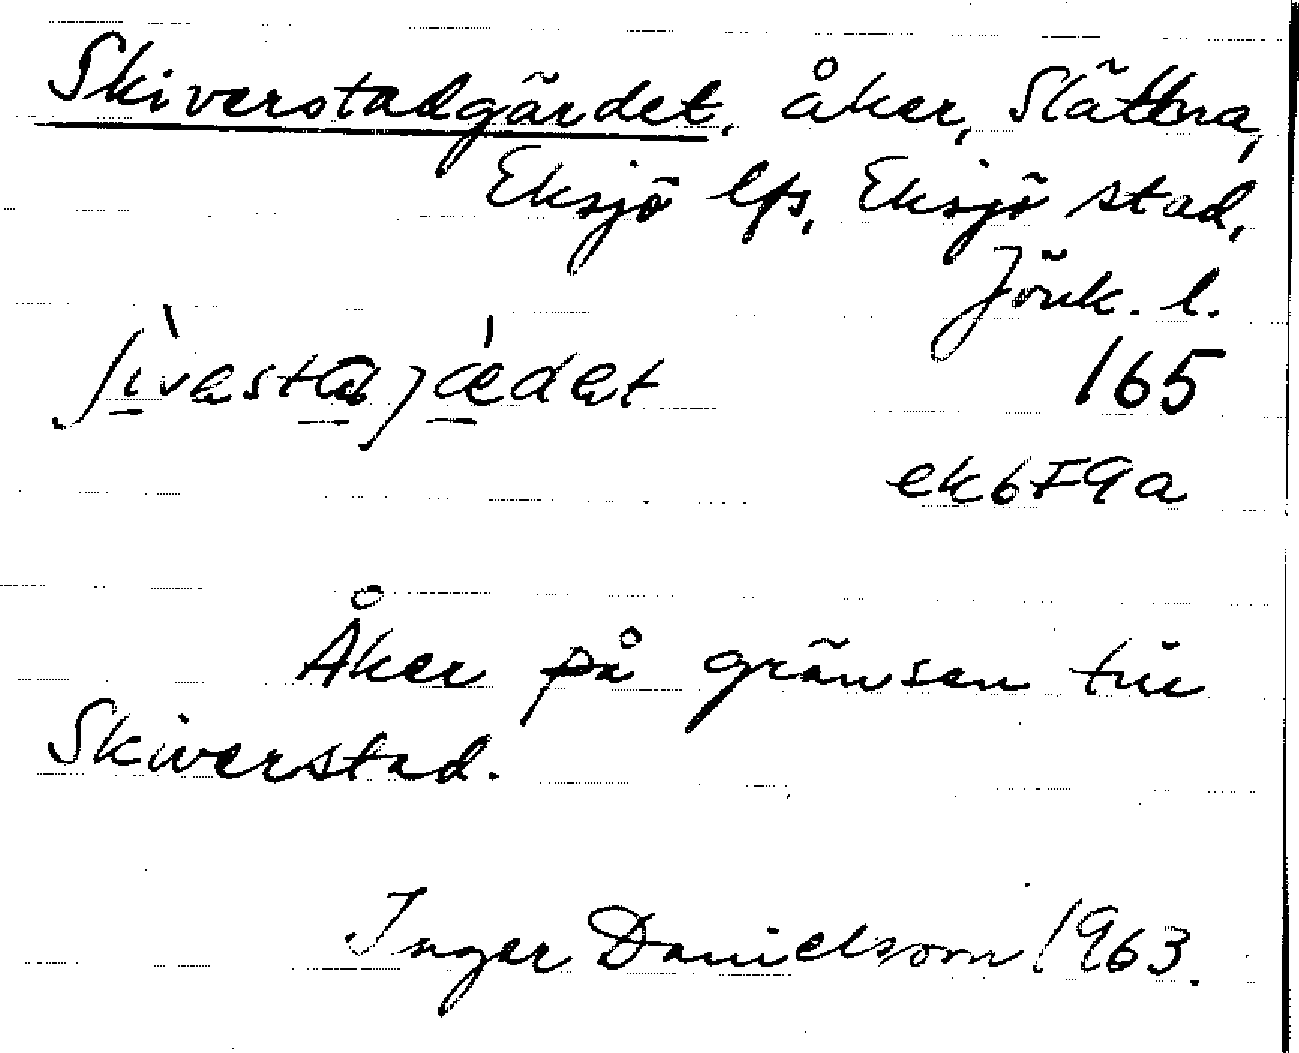 Skiverstadgärdet, åker, Slättna,
Eksjö lfs, Eksjö stad,
Jönk. l.
165
ek6F9a
Åker på gränsen till
Skiverstad.
Inger Danielsson 1963.